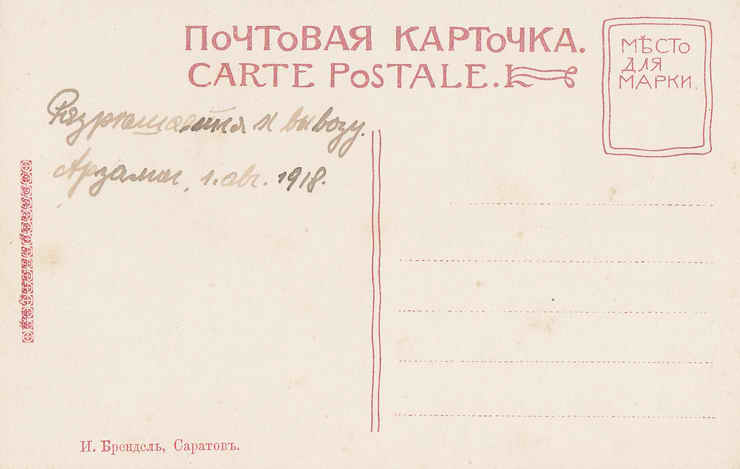 ПОЧТОВАЯ КАРТОЧКА.
CARTE POSTALE.
МѢСТО
ДЛЯ
МАРКИ.
Разрешается к вывозу.
Арзамас, 1. авг. 1918.
И. Брендель, Саратовъ.